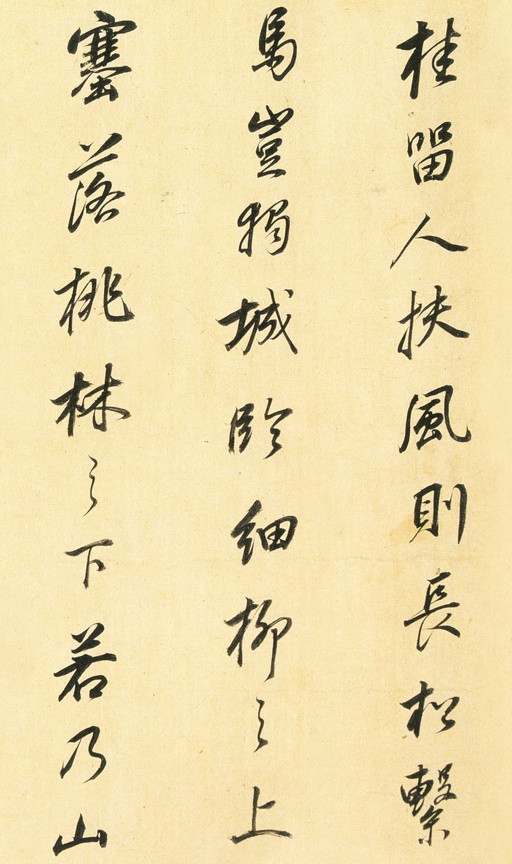 桂留人扶風則長松繫
馬豈獨城臨細柳之上
塞落桃林之下若乃山